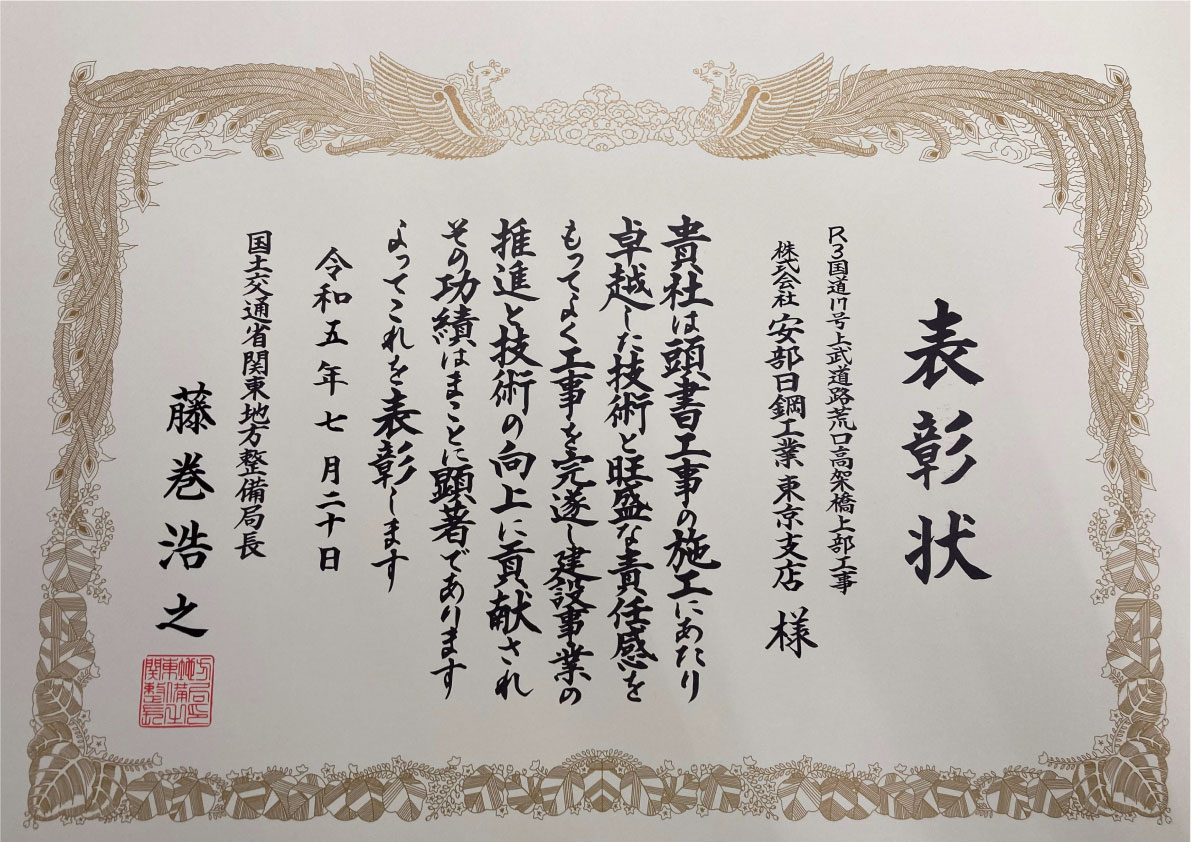 表彰状
R3国道17号上武道路荒口高架橋上部工事
株式会社 安部日鋼工業 東京支店 様
貴社は頭書工事の施工にあたり
卓越した技術と旺盛な責任感を
もってよく工事を完遂し建設事業の
推進と技術の向上に貢献され
その功績はまことに顕著であります
よってこれを表彰します
令和五年七月二十日
国土交通省関東地方整備局長
藤巻浩之